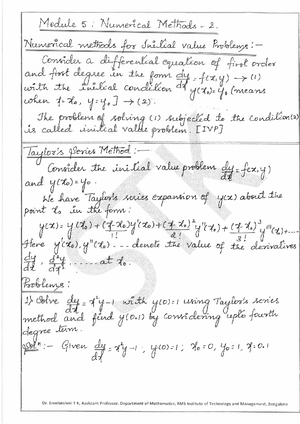 Module 5: Numerical Methods - 2.
Numerical methods for Initial value Problems:-
Consider a differential equation of first order
and first degree in the form dy/dx = f(x,y) → (1)
with the initial condition y(x₀)=y₀ (means
when x=x₀, y=y₀] → (2).
The problem of solving (1) subjected to the condition(2)
is called initial value problem. [IVP]
Taylor's Series Method:-
Consider the initial value problem dy/dx = f(x,y)
and y(x₀)=y₀.
We have Taylor's series expansion of y(x) about the
point x₀ in the form:
y(x) = y(x₀) + (x-x₀)/1! y'(x₀) + (x-x₀)²/2! y''(x₀) + (x-x₀)³/3! y'''(x₀)+....
Here y'(x₀), y''(x₀) ... denote the value of the derivatives
dy/dx, d²y/dx² ...... at x₀.
Problems:
1) Solve dy/dx = x²y-1 with y(0)=1 using Taylor's series
method and find y(0.1) by considering upto fourth
degree term.
Soln:- Given dy/dx = x²y-1, y(0)=1; x₀=0, y₀=1, x=0.1
Dr. Sreelakshmi T K, Assistant Professor, Department of Mathematics, RNS Institute of Technology and Management, Bangalore